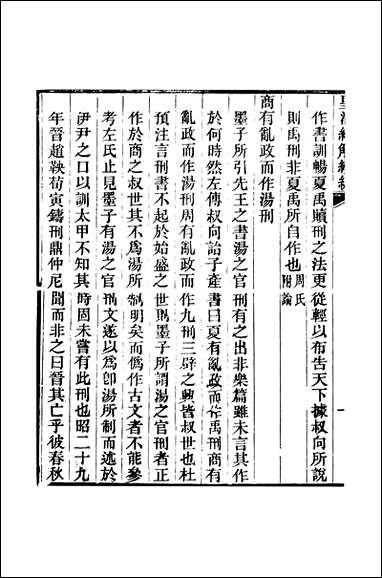 作書訓暢夏禹贖刑之法更從輕以布告天下據叔向所說
則禹刑非夏禹所自作也周氏附論
商有亂政而作湯刑
墨子所引先王之書湯之官刑有之出非樂篇雖未言其作
於何時然左傳叔向詒子產書曰夏有亂政而作禹刑商有
亂政而作湯刑周有亂政而作九刑三辟之興皆叔世也杜
預注言刑書不起於始盛之世則墨子所謂湯之官刑者正
作於商之叔世其不爲湯所制明矣而僞作古文者不能參
考左氏止見墨子有湯之官刑文遂以爲卽湯所制而述於
伊尹之口以訓太甲不知其時固未嘗有此刑也昭二十九
年晉趙鞅荀寅鑄刑鼎仲尼聞而非之曰晉其亡乎彼春秋